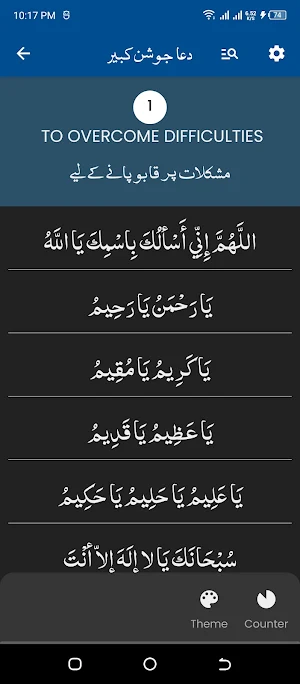 10:17 PM 6.52 K/S 74
دعا جوشن کبیر
1
TO OVERCOME DIFFICULTIES
مشکلات پر قابو پانے کے لیے
اللَّهُمَّ إِنِّي أَسْأَلُكَ بِاسْمِكَ يَا اللَّهُ
يَا رَحْمَنُ يَا رَحِيمُ
يَا كَرِيمُ يَا مُقِيمُ
يَا عَظِيمُ يَا قَدِيمُ
يَا عَلِيمُ يَا حَلِيمُ يَا حَكِيمُ
سُبْحَانَكَ يَا لا إِلَهَ إِلاّ أَنْتَ
Theme Counter